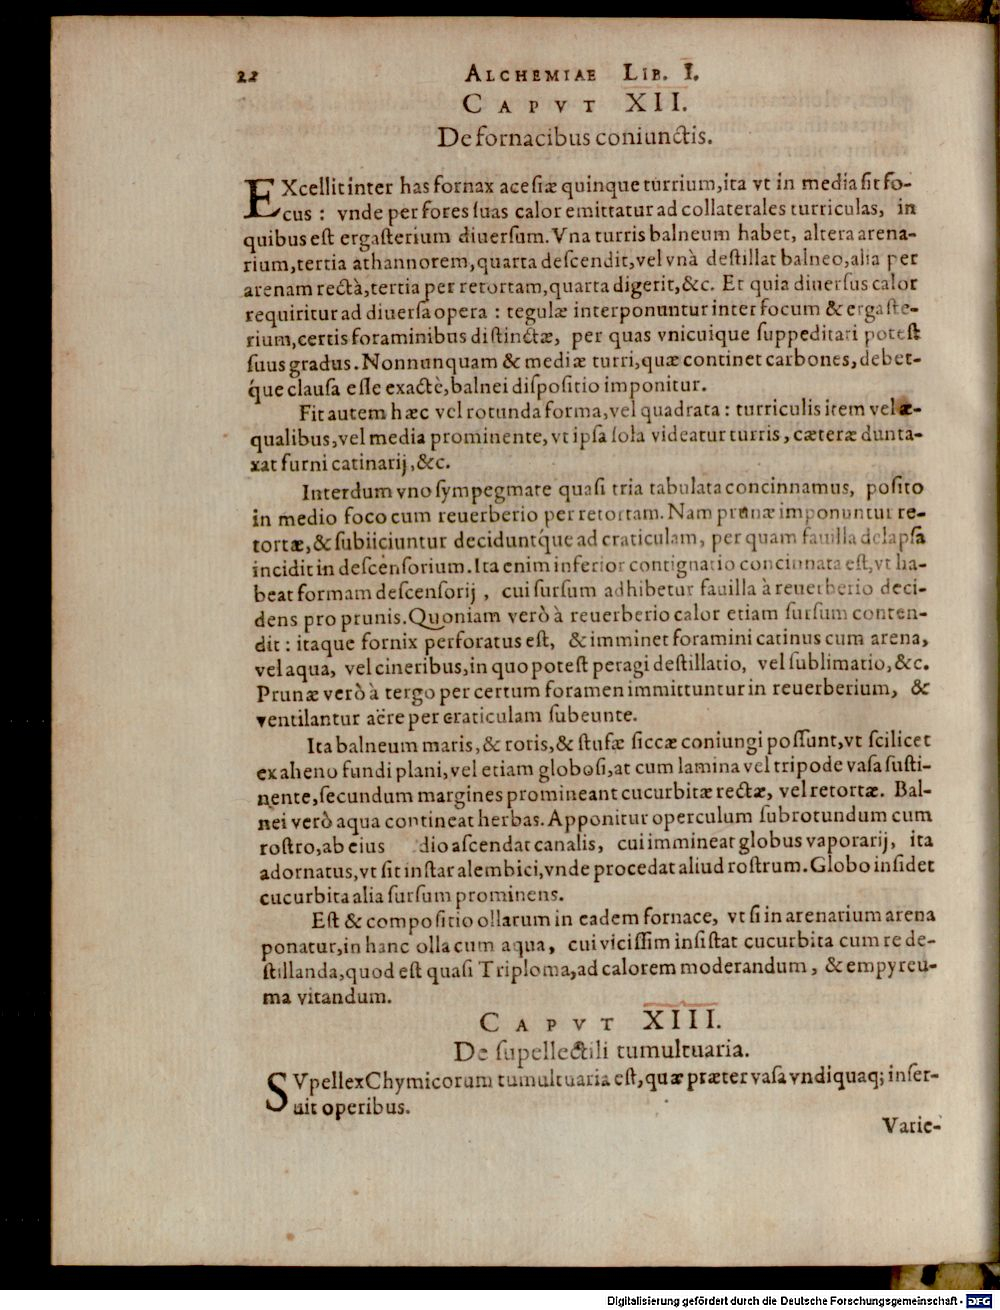 22 ALCHEMIAE LIB. I.
CAPVT XII.
De fornacibus coniunctis.
EXcellit inter has fornax acesiæ quinque turrium, ita vt in media sit fo-
cus : vnde per fores suas calor emittatur ad collaterales turriculas, in
quibus est ergasterium diuersum. Vna turris balneum habet, altera arena-
rium, tertia athannorem, quarta descendit, vel vnà destillat balneo, alia per
arenam rectà, tertia per retortam, quarta digerit, &c. Et quia diuersus calor
requiritur ad diuersa opera : tegulæ interponuntur inter focum & ergaste-
rium, certis foraminibus distinctæ, per quas vnicuique suppeditari potest
suus gradus. Nonnunquam & mediæ turri, quæ continet carbones, debet-
q́ue clausa esse exactè, balnei dispositio imponitur.
Fit autem hæc vel rotunda forma, vel quadrata : turriculis item vel æ-
qualibus, vel media prominente, vt ipsa sola videatur turris, cæteræ dunta-
xat furni catinarij, &c.
Interdum vno sympegmate quasi tria tabulata concinnamus, posito
in medio foco cum reuerberio per retortam. Nam prunæ imponuntur re-
tortæ, & subiiciuntur deciduntq́ue ad craticulam, per quam fauilla delapsa
incidit in descensorium. Ita enim inferior contignatio concinnata est, vt ha-
beat formam descensorij , cui sursum adhibetur fauilla à reuerberio deci-
dens pro prunis. Quoniam verò à reuerberio calor etiam sursum conten-
dit : itaque fornix perforatus est, & imminet foramini catinus cum arena,
vel aqua, vel cineribus, in quo potest peragi destillatio, vel sublimatio, &c.
Prunæ verò à tergo per certum foramen immittuntur in reuerberium, &
ventilantur aëre per craticulam subeunte.
Ita balneum maris, & roris, & stufæ siccæ coniungi possunt, vt scilicet
ex aheno fundi plani, vel etiam globosi, at cum lamina vel tripode vasa susti-
nente, secundum margines promineant cucurbitæ rectæ, vel retortæ. Bal-
nei verò aqua contineat herbas. Apponitur operculum subrotundum cum
rostro, ab eius dio ascendat canalis, cui immineat globus vaporarij, ita
adornatus, vt sit instar alembici, vnde procedat aliud rostrum. Globo insidet
cucurbita alia sursum prominens.
Est & compositio ollarum in eadem fornace, vt si in arenarium arena
ponatur, in hanc olla cum aqua, cui vicissim insistat cucurbita cum re de-
stillanda, quod est quasi Triploma, ad calorem moderandum , & empyreu-
ma vitandum.
CAPVT XIII.
De supellectili tumultuaria.
SVpellex Chymicorum tumultuaria est, quæ præter vasa vndiquaq; inser-
uit operibus.
Varie-
Digitalisierung gefördert durch die Deutsche Forschungsgemeinschaft - DFG